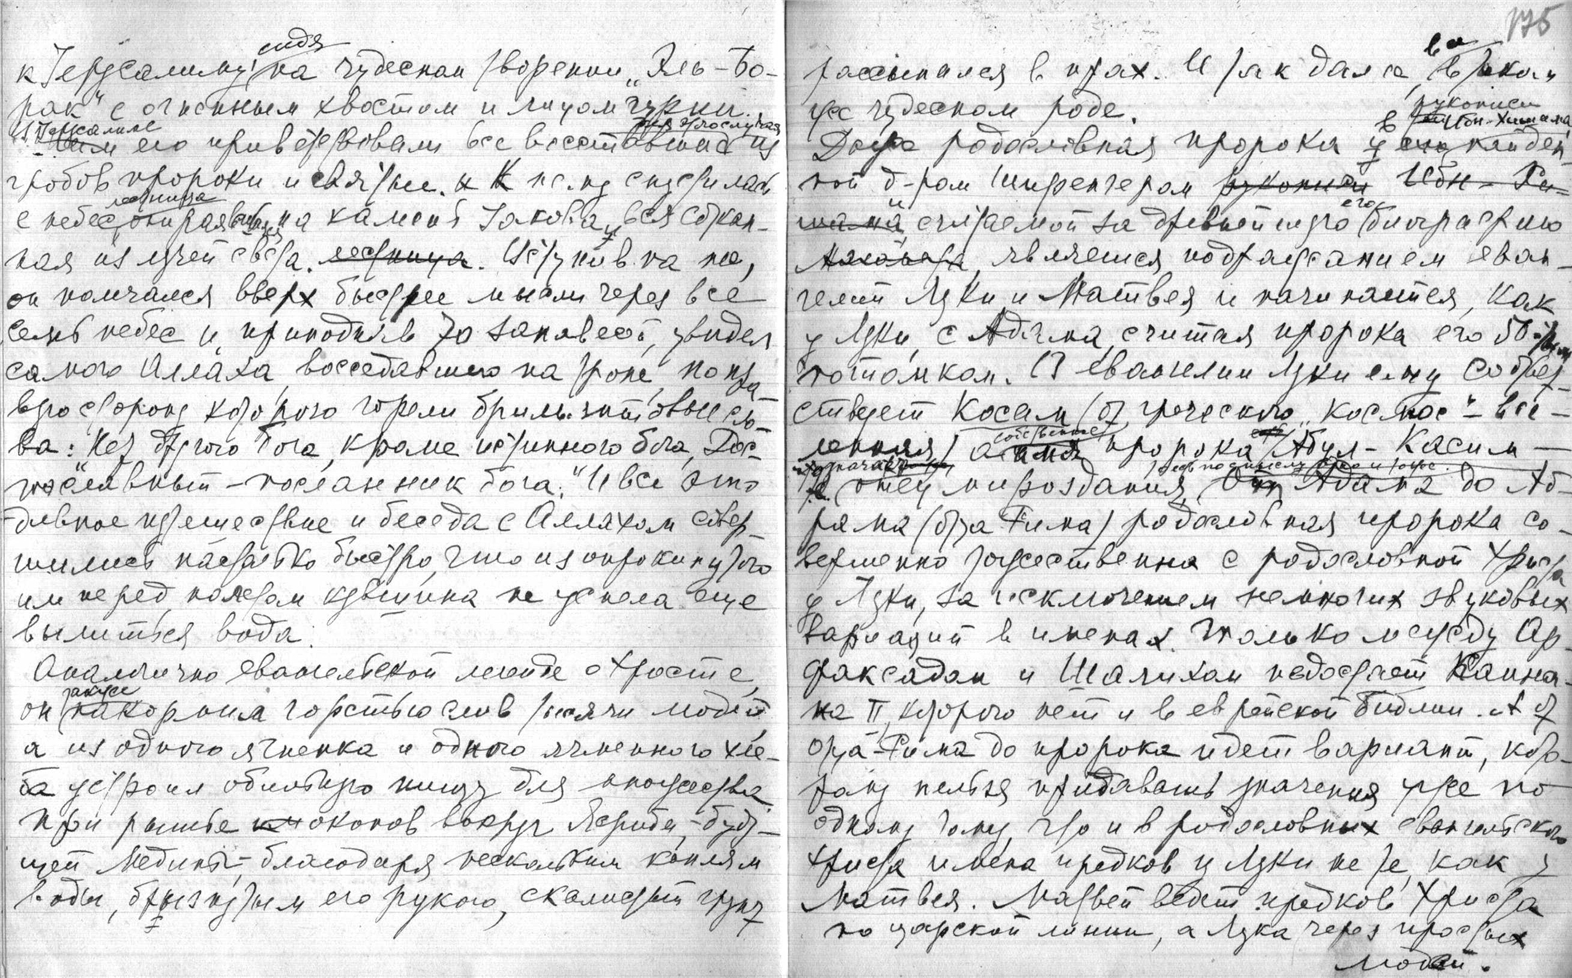 сидя
к Иерусалиму на чудесном творении „Эль-Бо-
рак“ с огненным хвостом и лицом гурии.
В Иерусалиме
его приветствовали все восставшие из
гробов пророки и святые. К нему спустилась
лестница
с небес, опиравшаяся на камень Iакова, вся соткан-
ная из лучей света. лестница. Вступив на нее,
он помчался вверх быстрее мысли через все
семь небес и, приподняв 70 заповест, увидел
самого Аллаха, восседавшего на троне, по пра-
вую сторону которого горели брильянтовые сло-
ва: „Нет другого бога, кроме истинного бога, Дос-
тославный – посланник бога.“ И все это
дивное путешествие и беседа с Аллахом совер-
шились настолько быстро, что из опрокинутого
им перед полетом кувшина не успела еще
вылиться вода.
Аналогично евангельской легенде о Христе,
также
он накормил горстью слив тысячи людей
а из одного ягненка и одного ячменного хле-
ба устроил обильную пищу для множества
при рытье окопов вокруг Ятриба, – буду-
щей Медины, – благодаря нескольким каплям
воды, брызнутым его рукою, скалистый грунт
175
рассыпался в прах. И так далее, все в таком
же чудесном роде.
рукописи
в Ибн-Хишама
Даже родословная пророка у найден-
ной д-ром Шпренгером рукописи Ибн-Хи-
шама и считаемой за древнейшую его биографию
является подражанием еван-
гелий Луки и Матвея и начинается, как
у Луки, с Адама, считая пророка его 50-тым
потомком. В евангелии Луки ему соответ-
ствует Косам (от греческого „космос“ – все-
ленная), а собственное имя пророка Абул-Касим –
означает
отец мироздания. От Адама до Аб-
рама (отца Рима) родословная пророка со-
вершенно тождественна с родословной Христа
у Луки, за исключением немногих звуковых
вариаций в именах. Только между Ар-
факсадом и Шалихом недостает Каина-
на II, которого нет и в еврейской библии. А от
отца-Рима до пророка идет вариант, кото-
рому нельзя придавать значения уже по
одному тому, что и в родословных евангельского
Христа имена предков у Луки не те, как у
Матвея. Матвей ведет предков Христа
по царской линии, а Лука через простых
людей.